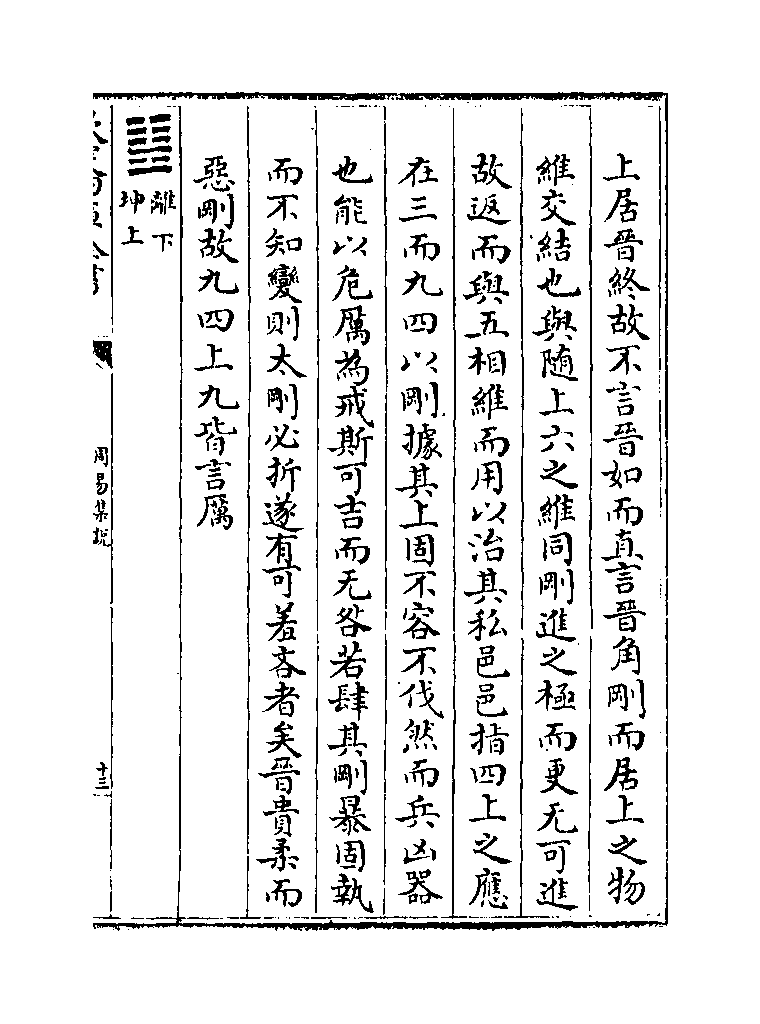 上居晉終故不言晉如而直言晉角剛而居上之物
維交結也與隨上六之維同剛進之極而更无可進
故返而與五相維而用以治其私邑邑指四上之應
在三而九四以剛據其上固不容不伐然而兵凶器
也能以危厲為戒斯可吉而无咎若肆其剛暴固執
而不知變則太剛必折遂有可羞吝者矣晉貴柔而
惡剛故九四上九皆言厲
䷣離下
坤上
周易集說
十三